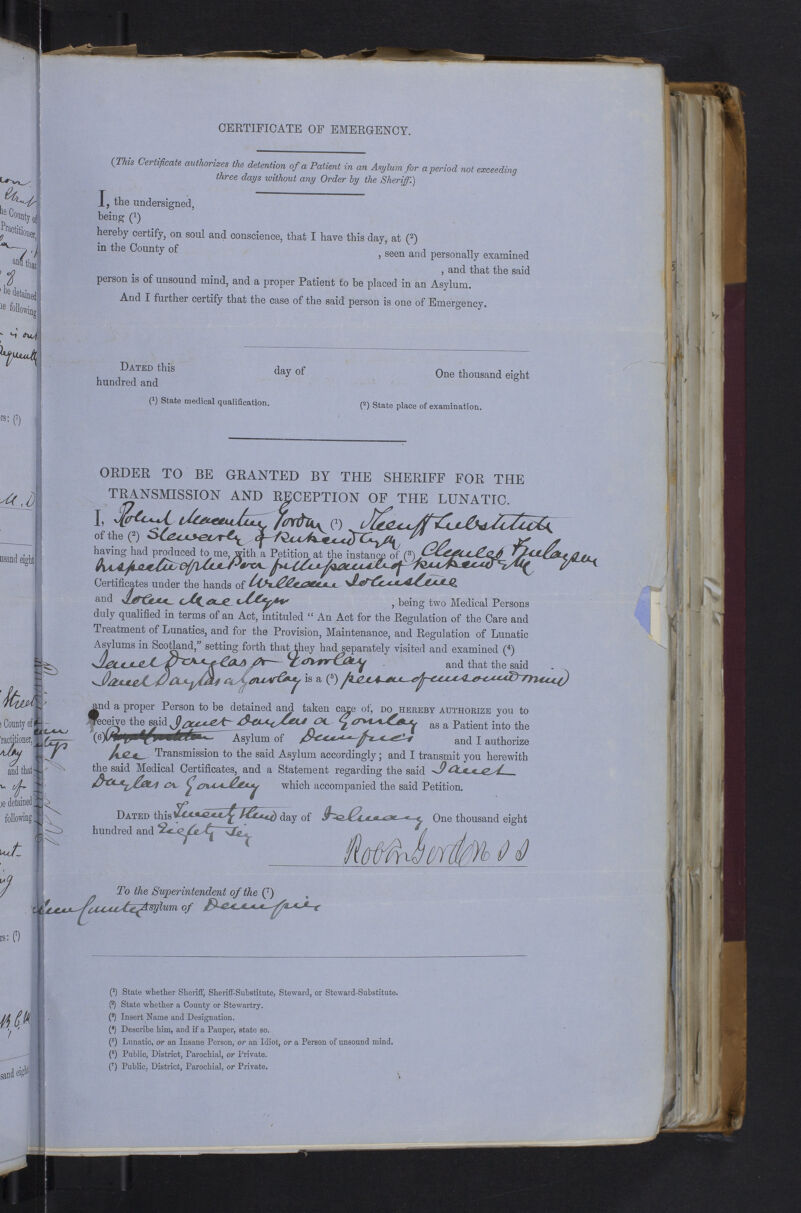 CERTIFICATE OF EMERGENCY.
(This Certificate authorizes the detention of a Patient in an Asylum for a period not exceeding
three days without any Order by the Sheriff.)
I, the undersigned,
being (1)
hereby certify, on soul and conscience, that I have this day, at (2)
in the County of , seen and personally examined
, and that the said
person is of unsound mind, and a proper Patient to be placed in an Asylum.
And I further certify that the case of the said person is one of Emergency.
DATED this day of One thousand eight
hundred and
(1) State medical qualification. (2) State place of examination.
ORDER TO BE GRANTED BY THE SHERIFF FOR THE
TRANSMISSION AND RECEPTION OF THE LUNATIC.
I, Robert Macartney Gordon (1) Sheriff Substitute
of the (2) Stewartry of Kirkcudbright
having had produced to me, with a Petition at the instance of (3) Charles Finlayson
Inspector of the Poor for the parish of Kirkcudbright
Certificates under the hands of William Johnstone
and John Mac Myn , being two Medical Persons
duly qualified in terms of an Act, intituled " An Act for the Regulation of the Care and
Treatment of Lunatics, and for the Provision, Maintenance, and Regulation of Lunatic
Asylums in Scotland," setting forth that they had separately visited and examined (4)
Janet Douglas or Gourlay and that the said
Janet Douglas or Gourlay is a (5) person of unsound mind
and a proper Person to be detained and taken care of, DO HEREBY AUTHORIZE you to
receive the said Janet Douglas or Gourlay as a Patient into the
(6) Asylum of Dumfries and I authorize
her Transmission to the said Asylum accordingly; and I transmit you herewith
the said Medical Certificates, and a Statement regarding the said Janet
Douglas or Gourlay which accompanied the said Petition.
DATED this Twenty third day of February One thousand eight
hundred and Eighty Six
Robt M Gordon S S
To the Superintendent of the (7)
County Asylum of Dumfries
(1) State whether Sheriff, Sheriff-Substitute, Steward, or Steward-Substitute.
(2) State whether a County or Stewartry.
(3) Insert Name and Designation.
(4) Describe him, and if a Pauper, state so.
(5) Lunatic, or an Insane Person, or an Idiot, or a Person of unsound mind.
(6) Public, District, Parochial, or Private.
(7) Public, District, Parochial, or Private.